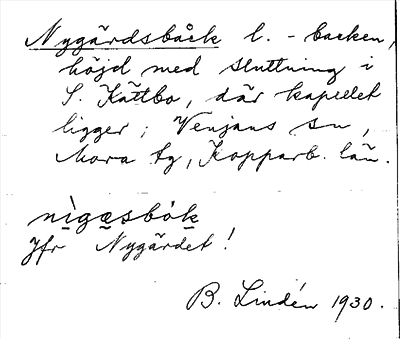 Nygårdsbåck l. -backen,
höjd med sluttning i
S. Kättbo, där kapellet
ligger; Venjans sn,
Mora tg, Kopparb. län.
nìgæsbòk
Jfr Nygärdet!
B. Lindén 1930.